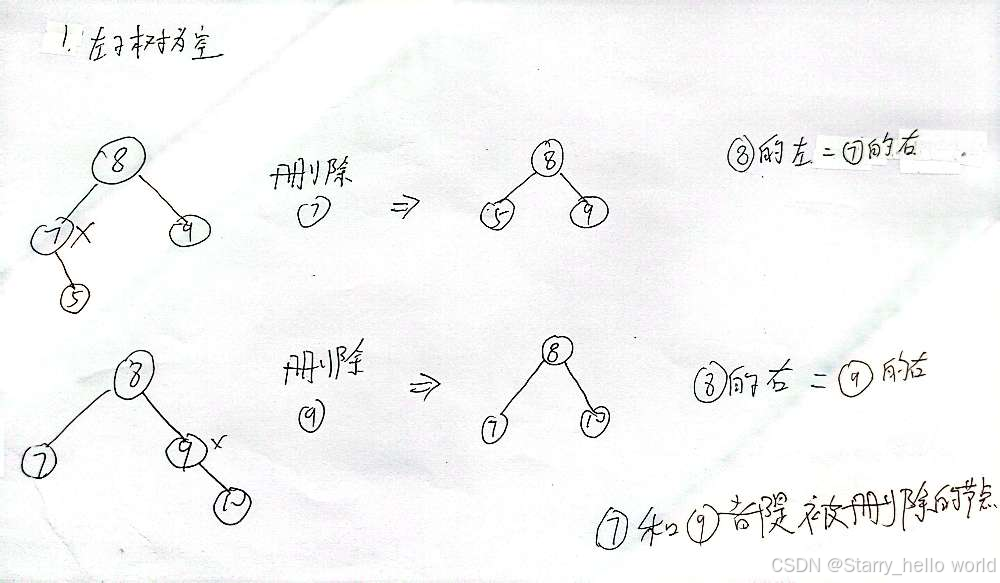 1. 左子树为空
8
7 × 9
5
删除
⑦ ⇒
8
5 9
⑧的左=⑦的右
8
7 9 ×
10
删除
⑨ ⇒
8
7 10
⑧的右=⑨的右
⑦和⑨都是被删除的节点
CSDN @Starry_hello world